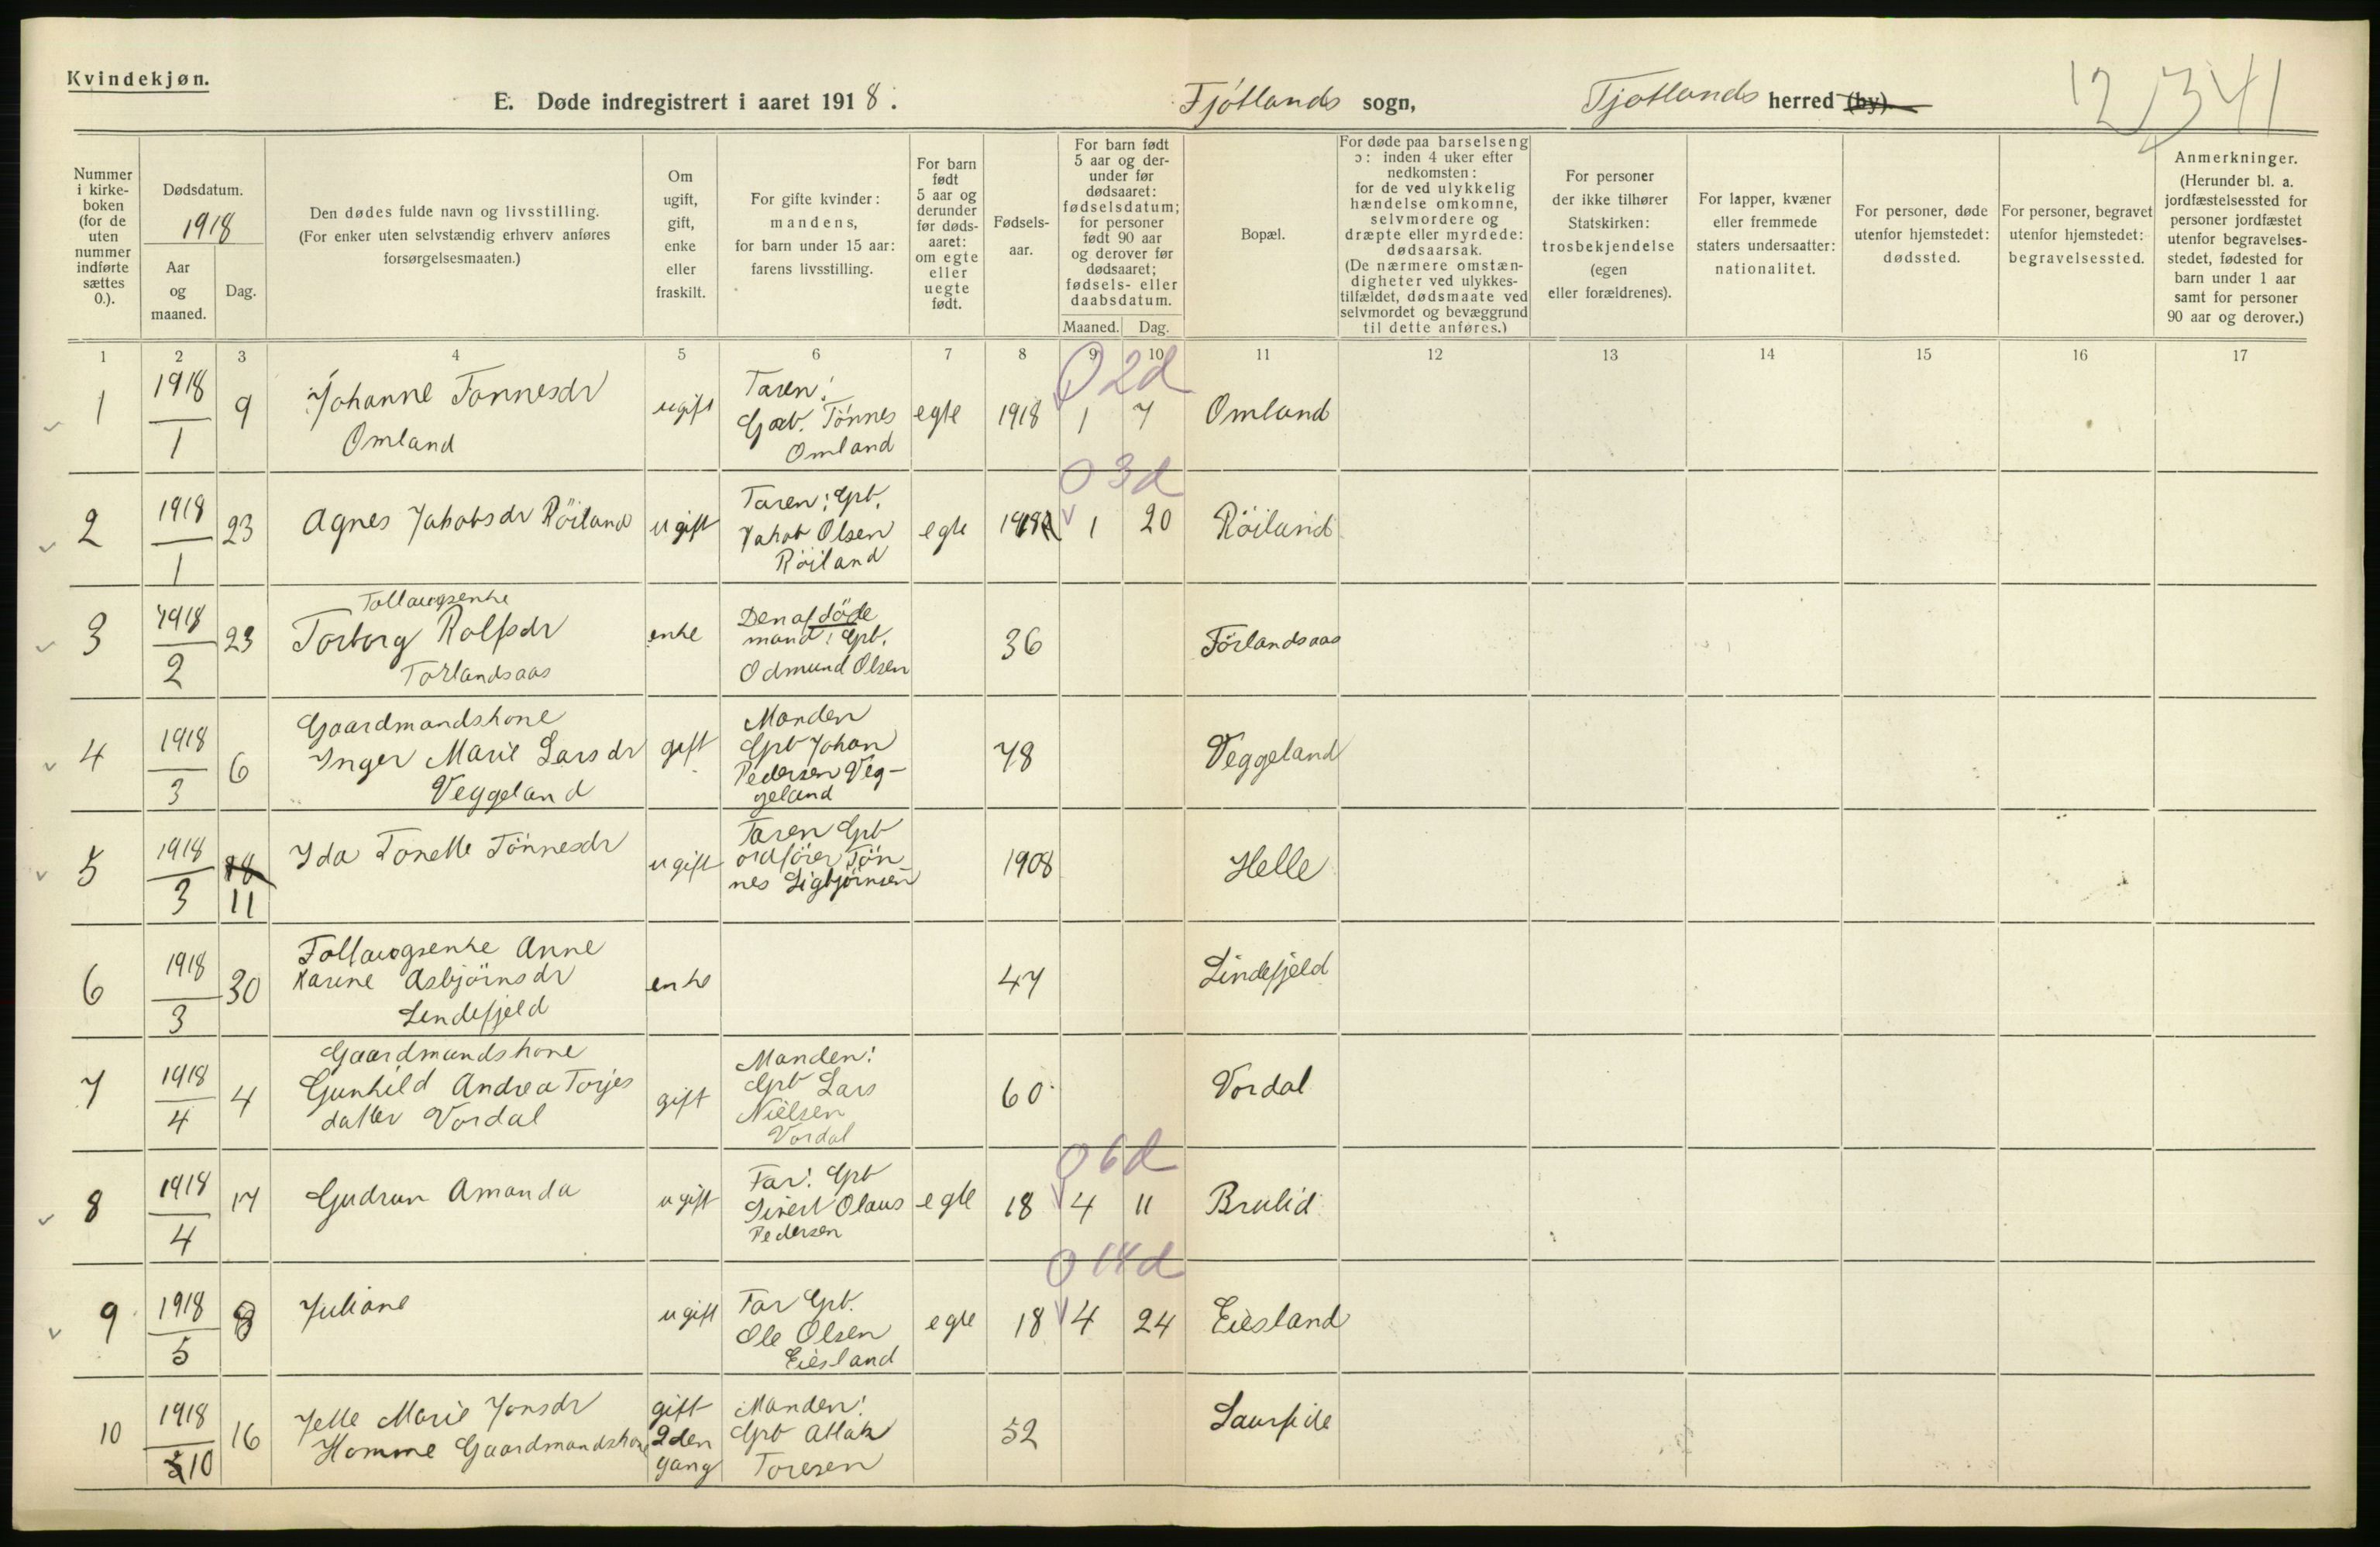 Kvindekjøn.
E. Døde indregistrert i aaret 1918.
Fjötlands sogn,
Fjotlands herred (by).
12341
Nummer i kirkeboken (for de uten nummer indførte sættes 0.).
Dødsdatum.
1918
Aar og maaned.
Dag.
Den dødes fulde navn og livsstilling.
(For enker uten selvstændig erhverv anføres forsørgelsesmaaten.)
Om ugift, gift, enke eller fraskilt.
For gifte kvinder: mandens, for barn under 15 aar: farens livsstilling.
For barn født 5 aar og derunder før dødsaaret: om egte eller uegte født.
Fødselsaar.
For barn født 5 aar og derunder før dødsaaret: fødselsdatum; for personer født 90 aar og derover før dødsaaret; fødsels- eller daabsdatum.
Maaned. Dag.
Bopæl.
For døde paa barselseng ɔ: inden 4 uker efter nedkomsten: for de ved ulykkelig hændelse omkomne, selvmordere og dræpte eller myrdede: dødsaarsak.
(De nærmere omstændigheter ved ulykkestilfældet, dødsmaate ved selvmordet og bevæggrund til dette anføres.)
For personer der ikke tilhører Statskirken: trosbekjendelse (egen eller forældrenes).
For lapper, kvæner eller fremmede staters undersaatter: nationalitet.
For personer, døde utenfor hjemstedet: dødssted.
For personer, begravet utenfor hjemstedet: begravelsessted.
Anmerkninger.
(Herunder bl. a. jordfæstelsessted for personer jordfæstet utenfor begravelsesstedet, fødested for barn under 1 aar samt for personer 90 aar og derover.)
1 2 3 4 5 6 7 8 9 10 11 12 13 14 15 16 17
0 2d
1 1918/1 9 Johanne Tönnesdr Omland ugift Faren: Gbr. Tönnes Omland egte 1918 1 7 Omland
0 3d
2 1918/1 23 Agnes Jakobsdr Röiland ugift Faren: Gbr. Jakob Olsen Röiland egte 1918 1 20 Röiland
3 1918/2 23 Follaugsenke Torborg Rolfsdr Förlandsaas enke Den afdöde mand: Gbr. Odmund Olsen 36 Förlandsaas
4 1918/3 6 Gaardmandskone Inger Marie Larsdr Veggeland gift Manden Gbr Johan Pedersen Veggeland 48 Veggeland
5 1918/3 18 11 Ida Tonette Tönnesdr ugift Faren Gbr ordförer Tönnes Sigbjörnsen 1908 Helle
6 1918/3 30 Follaugsenke Anne Karine Asbjörnsdr Lindefjeld enke 47 Lindefjeld
7 1918/4 4 Gaardmandskone Gunhild Andrea Torjesdatter Vordal gift Manden: Gbr Lars Nielsen Vordal 60 Vordal
0 6d
8 1918/4 17 Gudrun Amanda ugift Far: Gbr Sivert Olaus Pedersen egte 18 4 11 Brulid
0 14d
9 1918/5 8 Juliane ugift Far Gbr. Ole Olsen Eiesland egte 18 4 24 Eiesland
10 1918/10 16 Jelle Marie Jonsdr Homme Gaardmandskone gift 2den gang Manden: Gbr Atlak Toresen 52